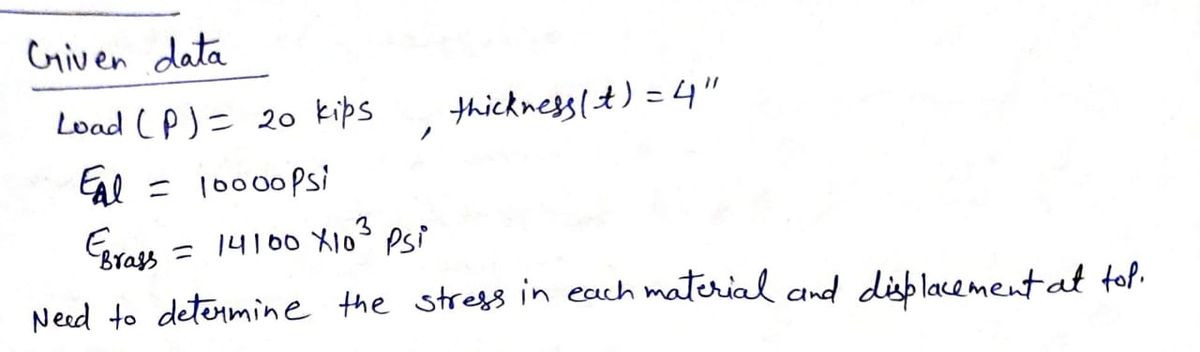 Given data
Load (P) = 20 kips , thickness(t) = 4"
EAl = 10000 Psi
EBrass = 14100 X10³ Psi
Need to determine the stress in each material and displacement at top.